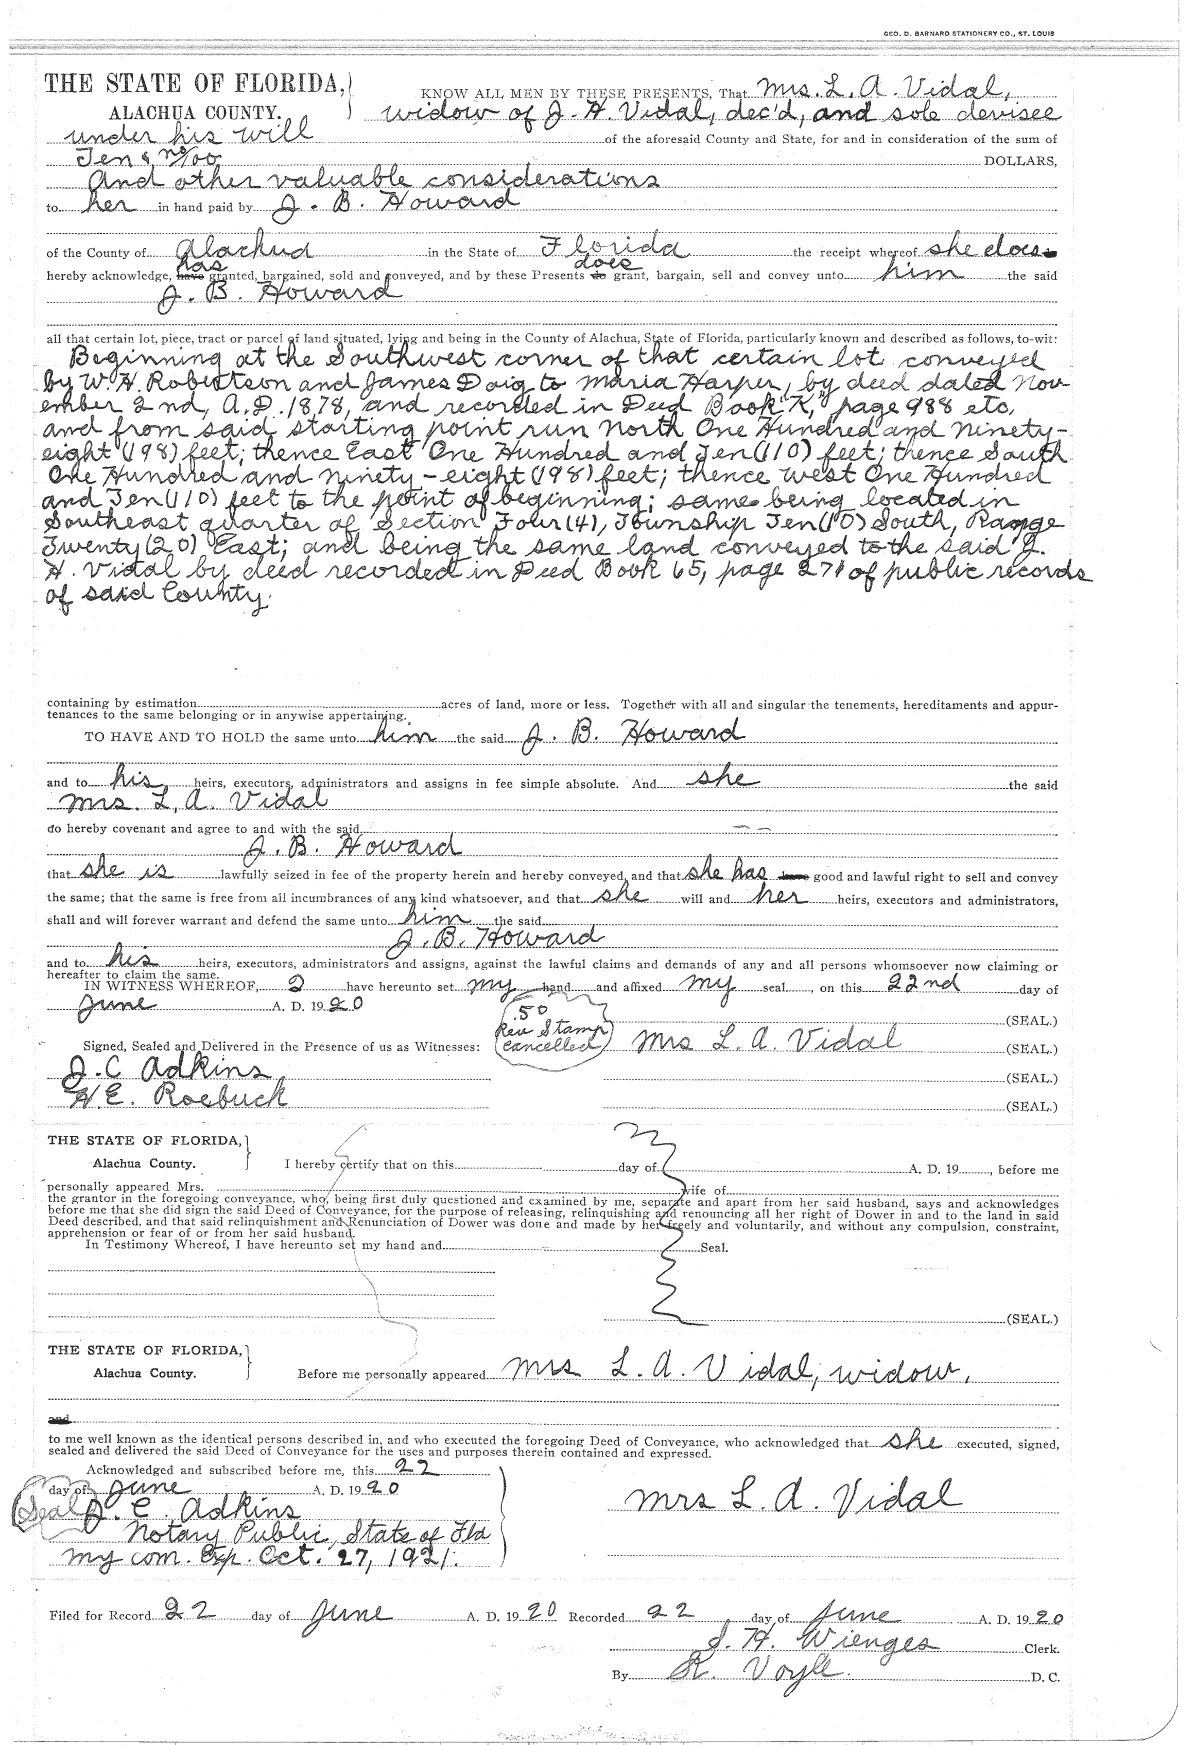 GEO. D. BARNARD STATIONERY CO., ST. LOUIS
THE STATE OF FLORIDA, KNOW ALL MEN BY THESE PRESENTS, That Mrs. L. A. Vidal,
ALACHUA COUNTY. widow of J. H. Vidal, dec'd, and sole devisee
under his will of the aforesaid County and State, for and in consideration of the sum of
Ten & no/00 DOLLARS,
And other valuable considerations
to her in hand paid by J. B. Howard
of the County of Alachua in the State of Florida the receipt whereof she does
has does
hereby acknowledge, have granted, bargained, sold and conveyed, and by these Presents do grant, bargain, sell and convey unto him the said
J. B. Howard
all that certain lot, piece, tract or parcel of land situated, lying and being in the County of Alachua, State of Florida, particularly known and described as follows, to-wit:
Beginning at the Southwest corner of that certain lot conveyed
by W. H. Robertson and James Doig to Maria Harper, by deed dated Nov-
ember 2nd, A.D. 1878, and recorded in Deed Book "K," page 988 etc,
and from said starting point run North One Hundred and Ninety-
eight (198) feet; thence East One Hundred and Ten (110) feet; thence South
One Hundred and Ninety-eight (198) feet; thence West One Hundred
and Ten (110) feet to the point of beginning; same being located in
Southeast quarter of Section Four (4), Township Ten (10) South, Range
Twenty (20) East; and being the same land conveyed to the said J.
H. Vidal by deed recorded in Deed Book 65, page 271 of public records
of said County.
containing by estimation acres of land, more or less. Together with all and singular the tenements, hereditaments and appur-
tenances to the same belonging or in anywise appertaining.
TO HAVE AND TO HOLD the same unto him the said J. B. Howard
and to his heirs, executors, administrators and assigns in fee simple absolute. And she the said
Mrs. L. A. Vidal
do hereby covenant and agree to and with the said
J. B. Howard
that she is lawfully seized in fee of the property herein and hereby conveyed, and that she has have good and lawful right to sell and convey
the same; that the same is free from all incumbrances of any kind whatsoever, and that she will and her heirs, executors and administrators,
shall and will forever warrant and defend the same unto him the said
J. B. Howard
and to his heirs, executors, administrators and assigns, against the lawful claims and demands of any and all persons whomsoever now claiming or
hereafter to claim the same.
IN WITNESS WHEREOF, I have hereunto set my hand and affixed my seal, on this 22nd day of
June A. D. 1920
.50
Rev Stamp
cancelled
(SEAL.)
Signed, Sealed and Delivered in the Presence of us as Witnesses: Mrs L. A. Vidal (SEAL.)
J. C Adkins (SEAL.)
H. E. Roebuck (SEAL.)
THE STATE OF FLORIDA,
Alachua County. I hereby certify that on this day of A. D. 19 , before me
personally appeared Mrs. wife of
the grantor in the foregoing conveyance, who, being first duly questioned and examined by me, separate and apart from her said husband, says and acknowledges
before me that she did sign the said Deed of Conveyance, for the purpose of releasing, relinquishing and renouncing all her right of Dower in and to the land in said
Deed described, and that said relinquishment and Renunciation of Dower was done and made by her freely and voluntarily, and without any compulsion, constraint,
apprehension or fear of or from her said husband.
In Testimony Whereof, I have hereunto set my hand and Seal.
(SEAL.)
THE STATE OF FLORIDA,
Alachua County. Before me personally appeared Mrs L. A. Vidal, widow,
and
to me well known as the identical persons described in, and who executed the foregoing Deed of Conveyance, who acknowledged that she executed, signed,
sealed and delivered the said Deed of Conveyance for the uses and purposes therein contained and expressed.
Acknowledged and subscribed before me, this 22
day of June A. D. 1920
Seal J. C. Adkins Mrs L. A. Vidal
Notary Public, State of Fla
My com. Exp. Oct. 27, 1921.
Filed for Record 22 day of June A. D. 1920 Recorded 22 day of June A. D. 1920
S. H. Wienges Clerk.
By R. Voyle. D. C.